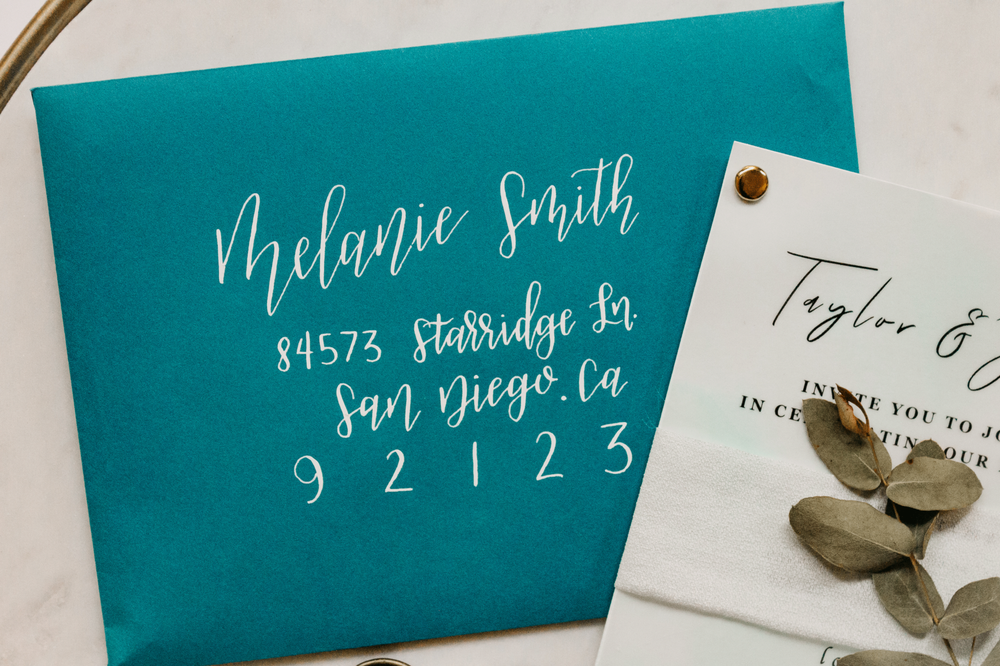 Melanie Smith
84573 Starridge Ln.
San Diego. Ca
9 2 1 2 3
Taylor &
INVITE YOU TO
IN OUR